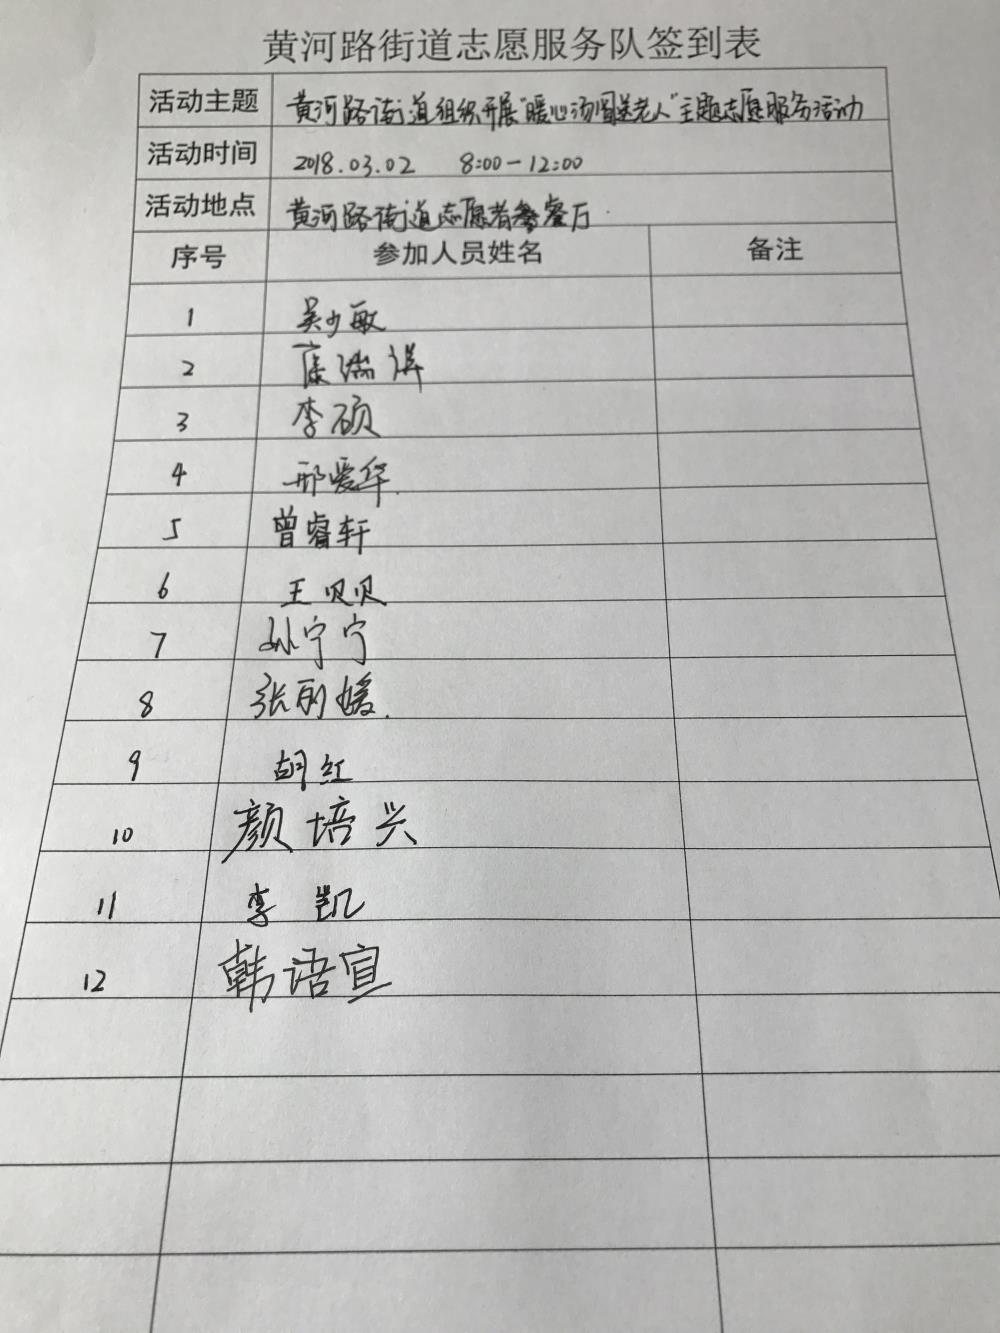 黄河路街道志愿服务队签到表
活动主题 黄河路街道组织开展"暖心汤圆送老人"主题志愿服务活动
活动时间 2018.03.02 8:00-12:00
活动地点 黄河路街道志愿者餐厅
序号 参加人员姓名 备注
1 吴少敏
2 瑞祥
3 李硕
4 邢爱华
5 曾睿轩
6 王贝贝
7 孙宁宁
8 张丽媛
9 胡红
10 颜培兴
11 李凯
12 韩语宣